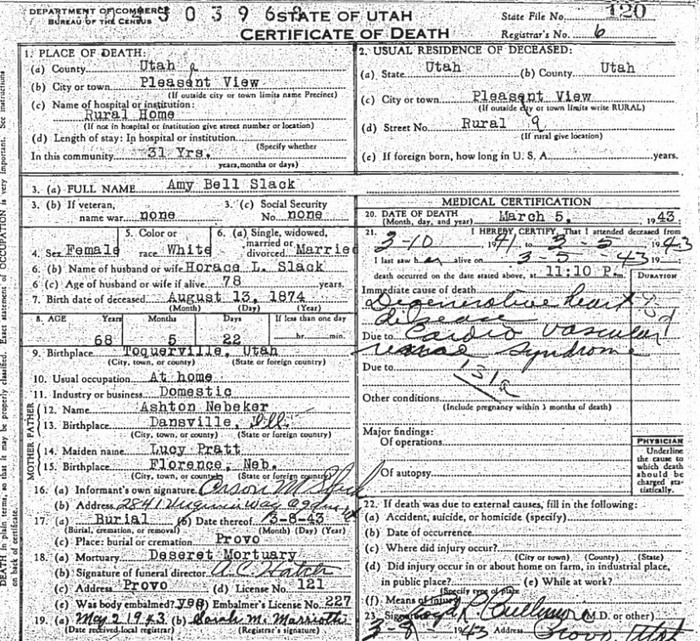 DEPARTMENT OF COMMERCE
BUREAU OF THE CENSUS
STATE OF UTAH
CERTIFICATE OF DEATH
State File No. 120
Registrar's No. 6
1. PLACE OF DEATH:
(a) County Utah
(b) City or town Pleasant View
(If outside city or town limits name Precinct)
(c) Name of hospital or institution:
Rural Home
(If not in hospital or institution give street number or location)
(d) Length of stay: In hospital or institution
(Specify whether
In this community 31 Yrs.
years, months or days)
2. USUAL RESIDENCE OF DECEASED:
(a) State Utah (b) County Utah
(c) City or town Pleasant View
(If outside city or town limits write RURAL)
(d) Street No. Rural 9
(If rural give location)
(e) If foreign born, how long in U. S. A. years.
3. (a) FULL NAME Amy Bell Slack
3. (b) If veteran, name war none
3. (c) Social Security No. none
4. Sex Female
5. Color or race White
6. (a) Single, widowed, married or divorced Married
6. (b) Name of husband or wife Horace L. Slack
6 (c) Age of husband or wife if alive 78 years
7. Birth date of deceased August 13, 1874
(Month) (Day) (Year)
8. AGE Years Months Days If less than one day
68 5 22 hr. min.
9. Birthplace Toquerville, Utah
(City, town, or county) (State or foreign country)
10. Usual occupation At home
11. Industry or business Domestic
FATHER
12. Name Ashton Nebeker
13. Birthplace Dansville, Ill.
(City, town, or county) (State or foreign country)
MOTHER
14. Maiden name Lucy Pratt
15. Birthplace Florence, Neb.
(City, town, or county) (State or foreign country)
16. (a) Informant's own signature Orson M. Slack
(b) Address 2841 Virginia Way Ogden Ut
17. (a) Burial (b) Date thereof 3-8-43
(Burial, cremation, or removal) (Month) (Day) (Year)
(c) Place: burial or cremation Provo
18. (a) Mortuary Deseret Mortuary
(b) Signature of funeral director A.C. Hatch
(c) Address Provo (d) License No. 121
(e) Was body embalmed? yes Embalmer's License No. 227
19. (a) May 2 1943 (b) Sarah M. Marriott
(Date received local registrar) (Registrar's signature)
MEDICAL CERTIFICATION
20. DATE OF DEATH March 5, 1943
(Month, day, and year)
21. I HEREBY CERTIFY, That I attended deceased from
3-10 1941 to 3-5 1943
I last saw her alive on 3-5-43 19
death occurred on the date stated above, at 11:10 P.m.
DURATION
Immediate cause of death
Degenerative heart
disease
Due to Cardio vascular
renal syndrome
Due to
131a
Other conditions
(Include pregnancy within 3 months of death)
Major findings:
Of operations
Of autopsy
PHYSICIAN
Underline the cause to which death should be charged statistically.
22. If death was due to external causes, fill in the following:
(a) Accident, suicide, or homicide (specify)
(b) Date of occurrence
(c) Where did injury occur?
(City or town) (County) (State)
(d) Did injury occur in or about home on farm, in industrial place,
in public place? (e) While at work?
(Specify type of place)
(f) Means of injury
23. Signature (M.D. or other)
Address Provo Utah